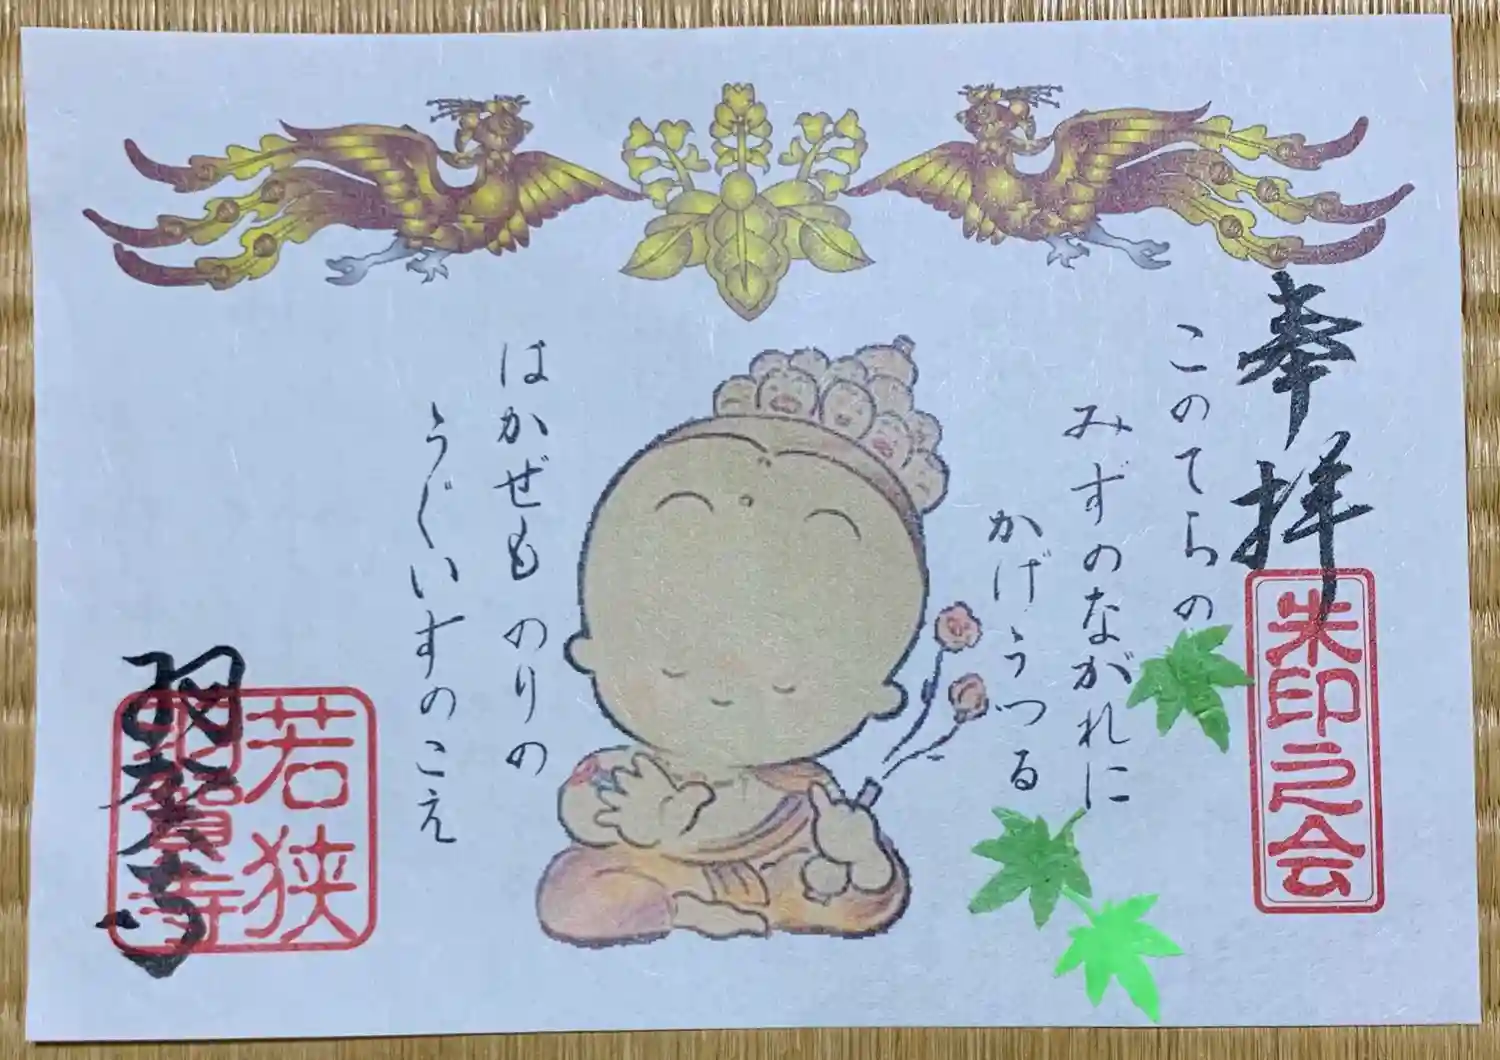 奉拝
朱印之会
このてらの
みずのながれに
かげうつる
はかぜも のりの
うぐいすのこえ
若狭
羽賀寺
羽賀寺